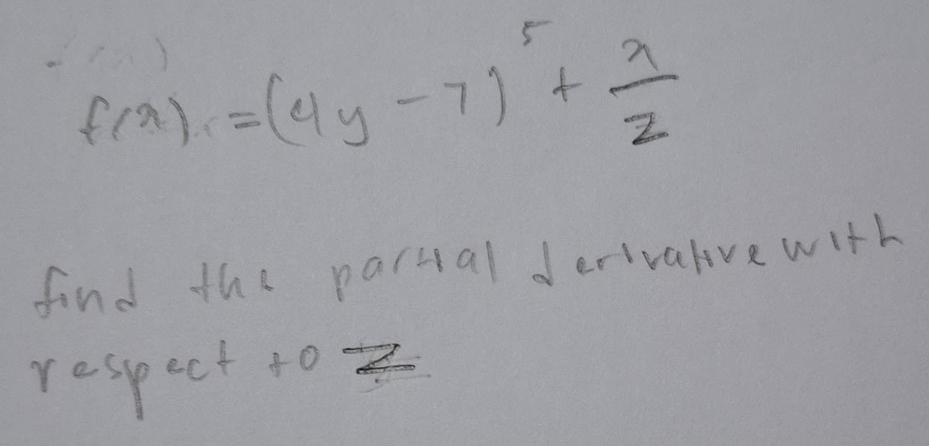 f(x) = (4y - 7)^5 + x/z
find the partial derivative with
respect to z